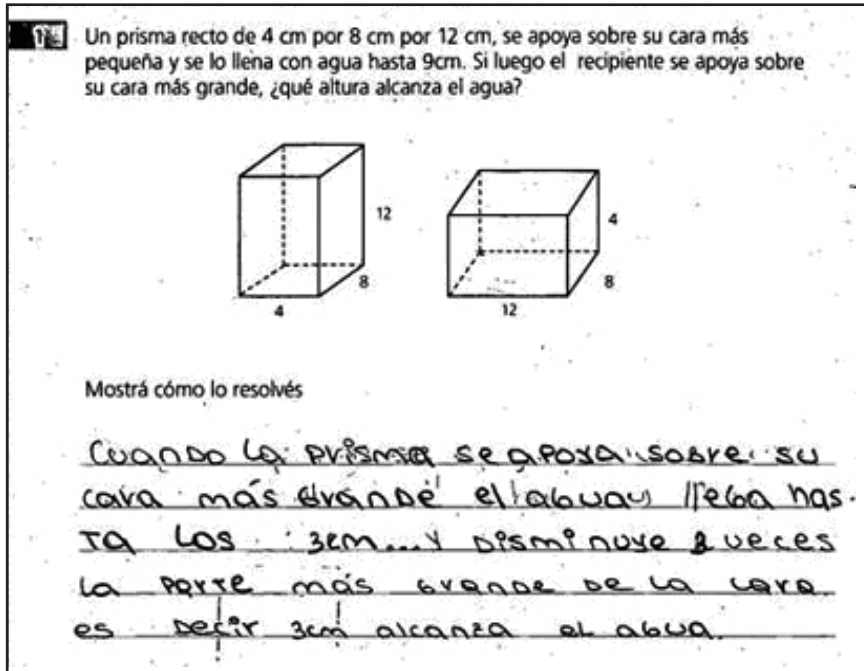 Un prisma recto de 4 cm por 8 cm por 12 cm, se apoya sobre su cara más
pequeña y se lo llena con agua hasta 9cm. Si luego el recipiente se apoya sobre
su cara más grande, ¿qué altura alcanza el agua?
12
8
4
4
8
12
Mostrá cómo lo resolvés
Cuando la prisma se apoya sobre su
cara más grande el agua llega has
ta los 3cm... y disminuye 3 veces
la parte más grande de la cara
es decir 3cm alcanza el agua.